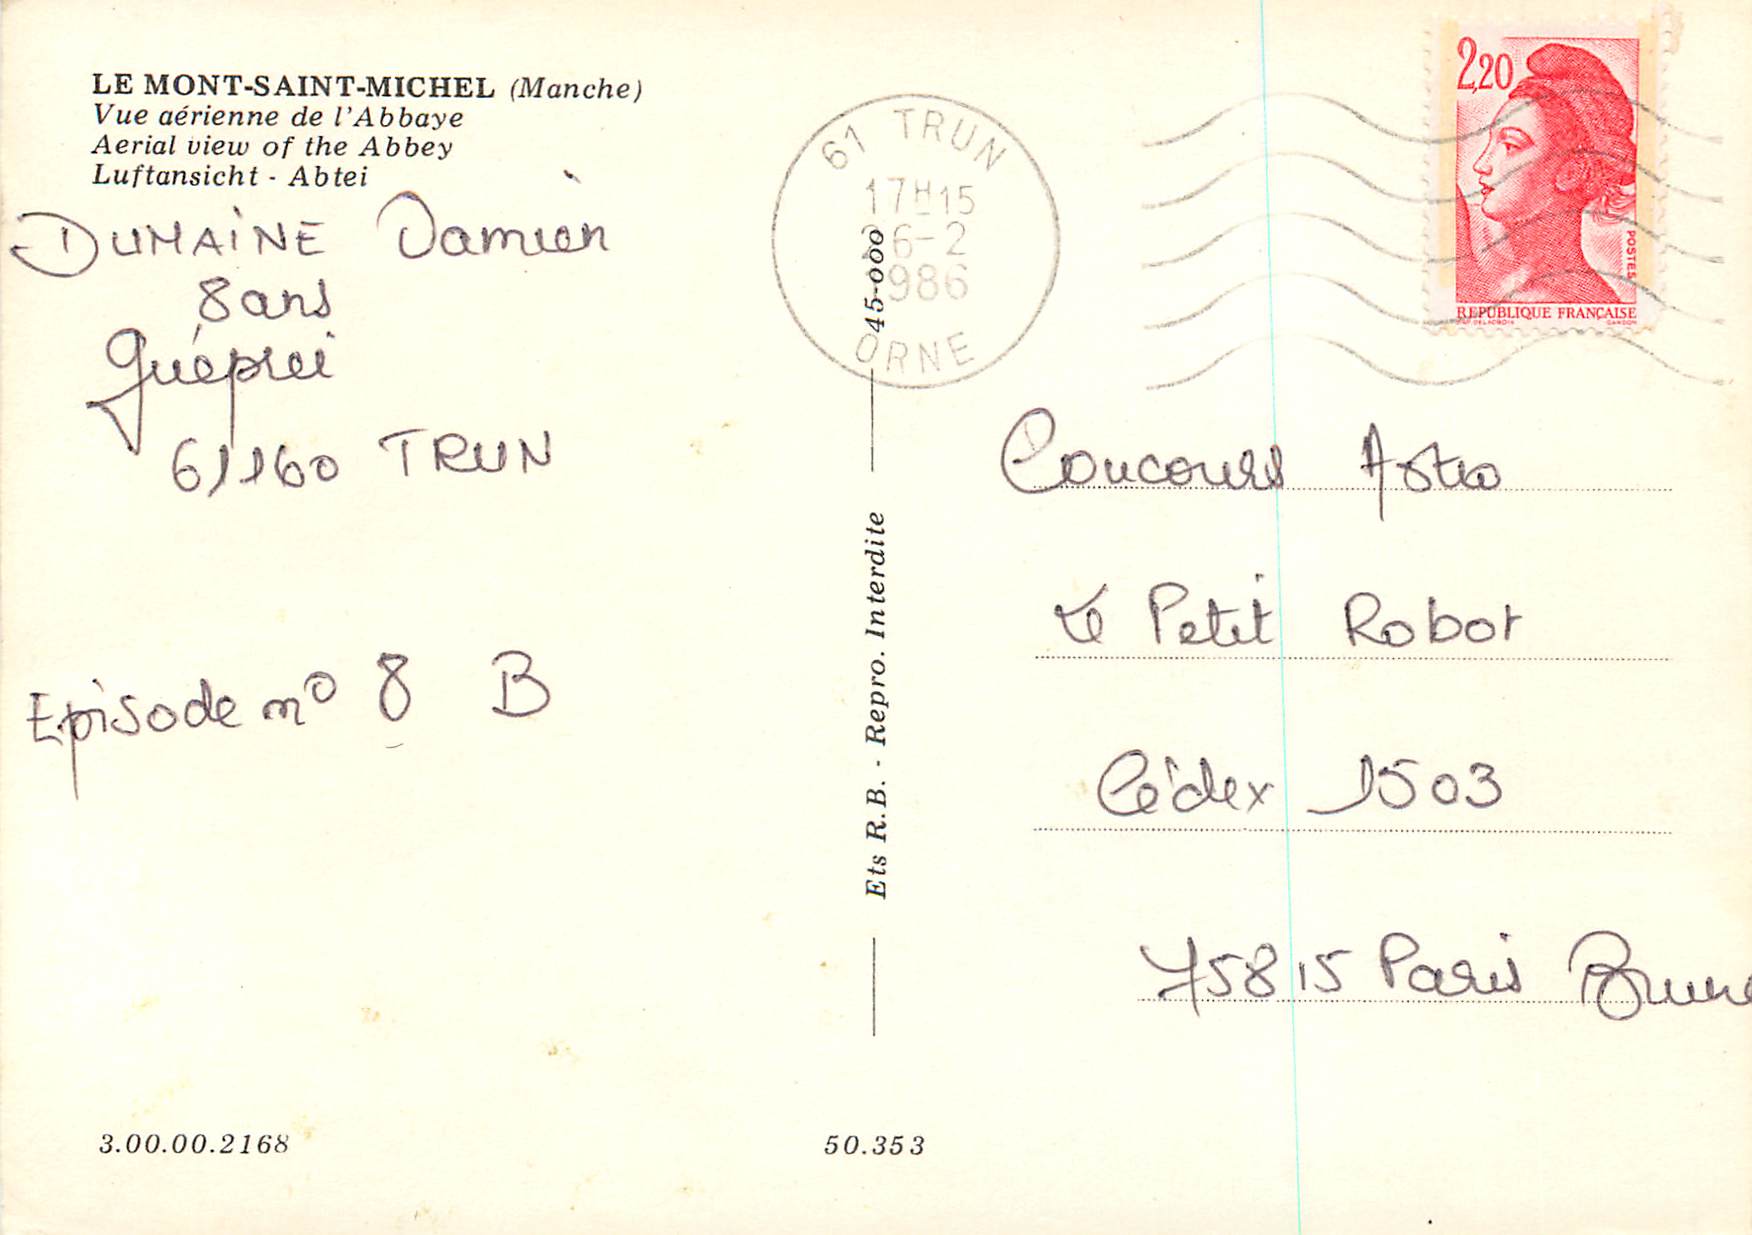 LE MONT-SAINT-MICHEL (Manche)
Vue aérienne de l'Abbaye
Aerial view of the Abbey
Luftansicht - Abtei
DUMAINE Damien
8 ans
Guéprei
61160 TRUN
Episode n° 8 B
3.00.00.2168
61 TRUN
17H15
6-2
1986
ORNE
45-000
Ets R.B. - Repro. Interdite
50.353
2,20
POSTES
REPUBLIQUE FRANÇAISE
Concours Astro
Le Petit Robot
Cédex 1503
75815 Paris Brune